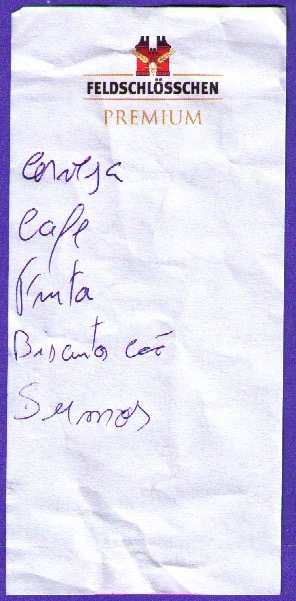 FELDSCHLÖSSCHEN
PREMIUM
Cerveja
Café
Fruta
Biscuitos cão
Sumos